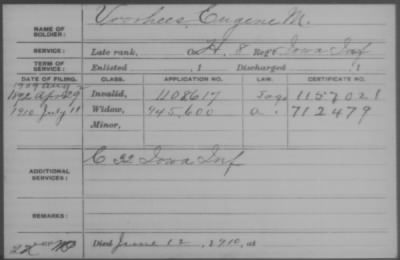 NAME OF SOLDIER: Voorhees, Eugene M.
SERVICE: Late rank, Co. H, 8 Reg't Iowa Inf
TERM OF SERVICE: Enlisted , 1 Discharged , 1
DATE OF FILING. CLASS. APPLICATION NO. LAW. CERTIFICATE NO.
1892 Apr 29 Invalid, 1108617 1157021
1910 July 11 Widow, 945,600 a. 712479
Minor,
ADDITIONAL SERVICES: C 22 Iowa Inf
REMARKS:
Died June 12, 1910, at